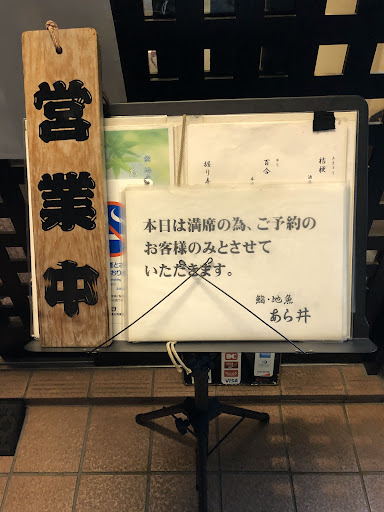 営業中
桔梗
百合
握り
本日は満席の為、ご予約の
お客様のみとさせて
いただきます。
鮨・地魚
あら井
VISA